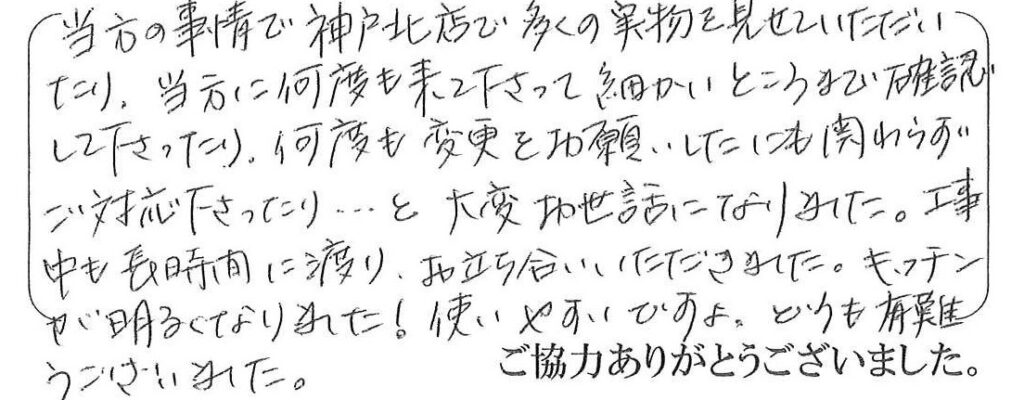 当方の事情で神戸北店で多くの実物を見せていただい
たり、当方に何度も来て下さって細かいところまで確認
して下さったり、何度も変更をお願いしたにも関わらず
ご対応下さったり…と大変お世話になりました。工事
中も長時間に渡り、お立ち合いいただきました。キッチン
が明るくなりました！使いやすいですよ。どうも有難
うございました。
ご協力ありがとうございました。